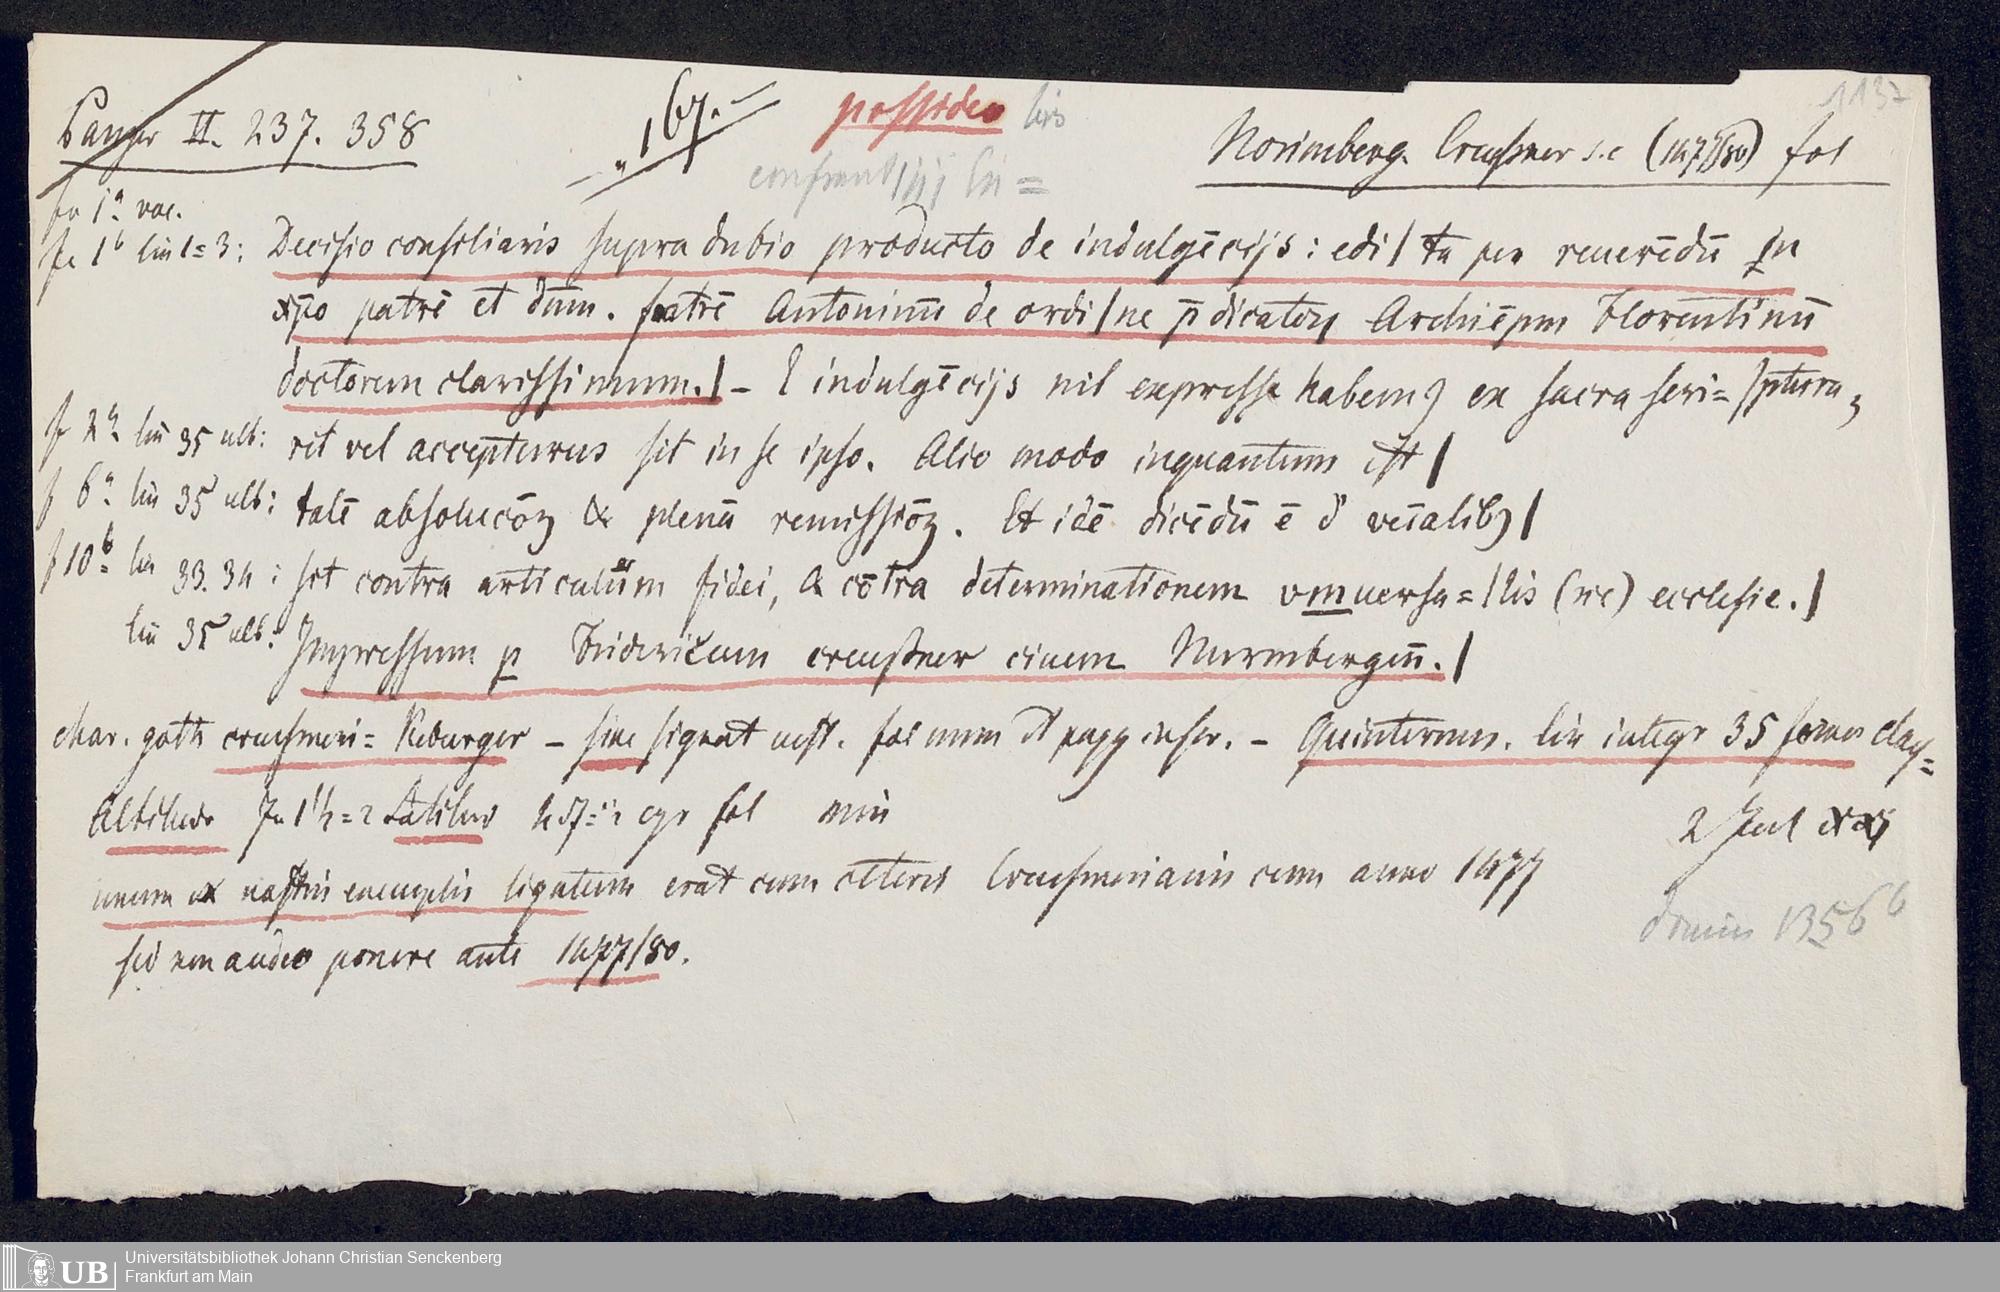 1137
Panzer II. 237. 358
167.
possideo bis
Norimberg. Creußner s. a (1477/80) fol
fo 1a vac.
fo 1b lin 1=3: Decisio consiliaris supra dubio producto de indulgēcijs : edi/ta per reuerēdū In
xp̄o patrē et dūm. fratrē Antoninū de ordi/ne p̄dicatoꝝ Archiēpm Florentinū
doctorem clarissimum./ – E indulgēcijs nil expresse habemꝰ ex sacra scri=/ptura,
f 2a lin 35 ult: rit vel accepturus sit in se ipso. Alio modo inquantum est/
f 6a lin 35 ult: talē absolucōꝫ & plenā remissiōꝫ. Et idē dicēdū ē d' vēialibꝫ/
f 10b lin 33. 34: sit contra articulum fidei, & cōtra determinationem vmuersa=/lis (sic) ecclesie./
lin 35 ult: Impressum ꝑ Fridericum creußner ciuem Nurmbergeñ./
char. goth creusneri= Koburger – sine signat cust. fol num et pagg inscr. – Quinternus. lin integr 35
Altitudo Latitudo fol min
unum ex nostris exemplis ligatum erat cum ceteris Creusnerianis cum anno 1477
sed non audeo ponere ante 1477/80.
UB Universitätsbibliothek Johann Christian Senckenberg
Frankfurt am Main